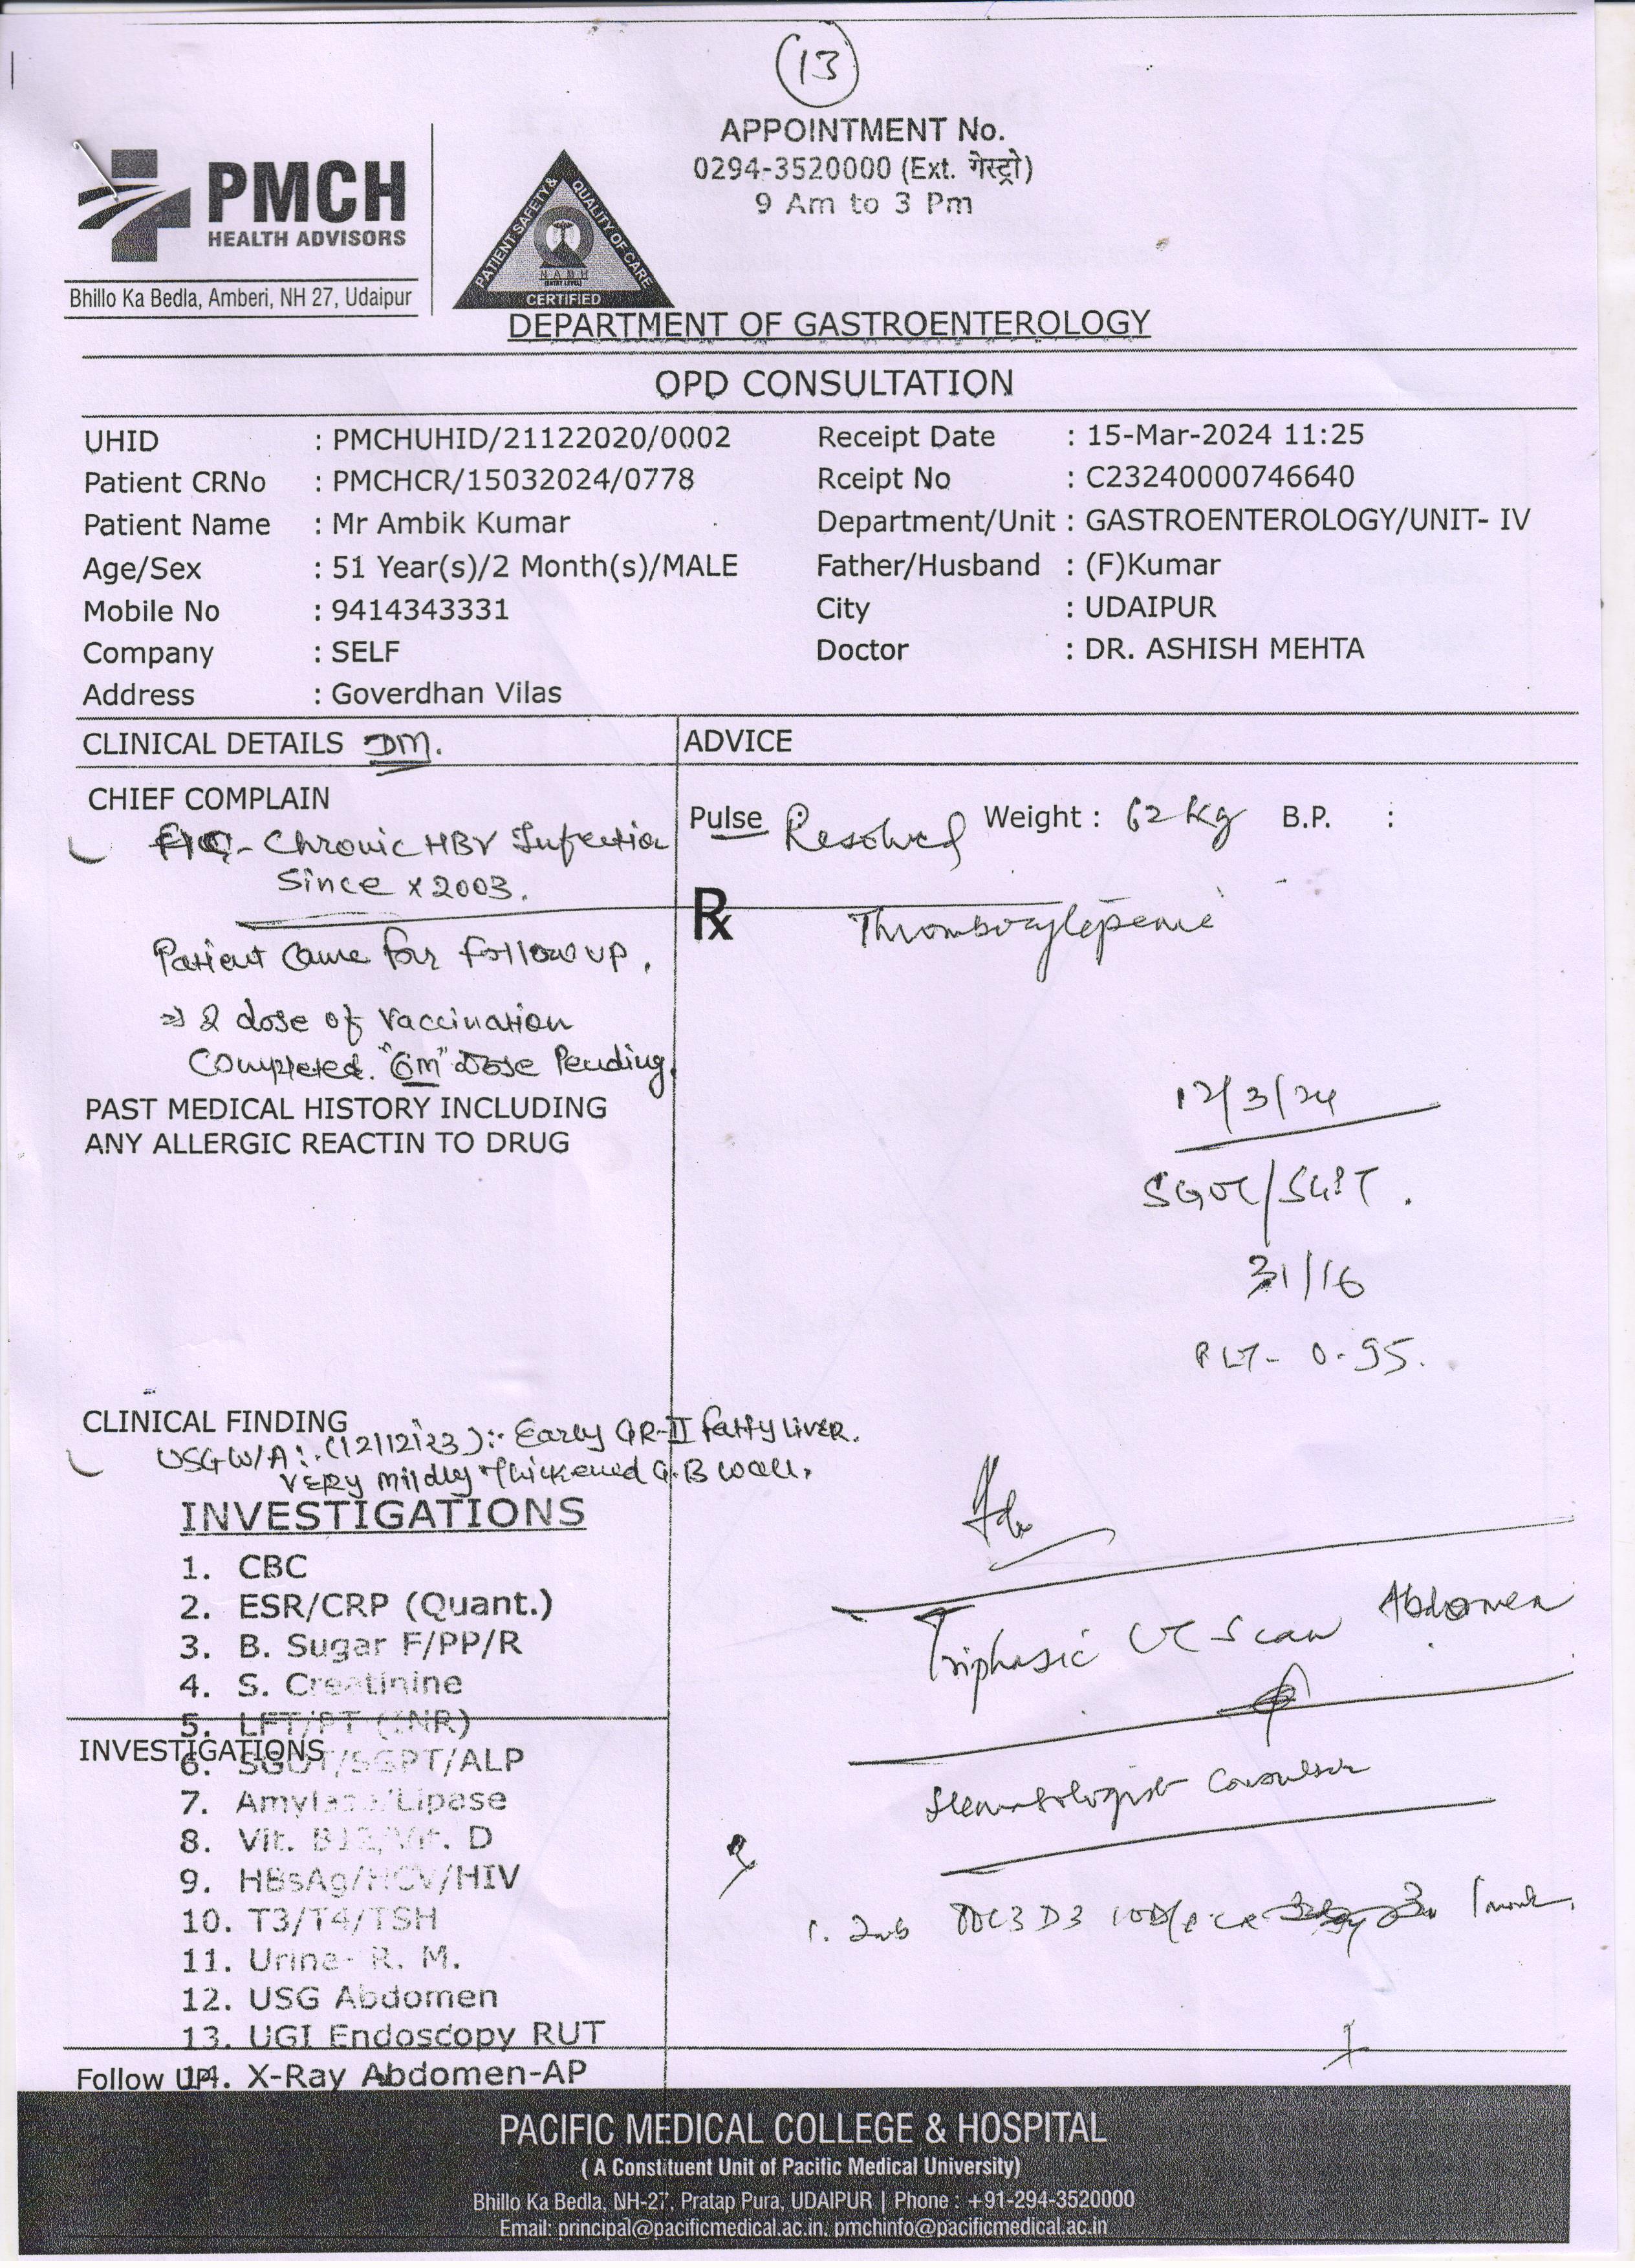 13
APPOINTMENT No.
0294-3520000 (Ext. गेस्ट्रो)
9 Am to 3 Pm
PMCH
HEALTH ADVISORS
Bhillo Ka Bedla, Amberi, NH 27, Udaipur
PATIENT SAFETY & QUALITY OF CARE
NABH
(ENTRY LEVEL)
CERTIFIED
DEPARTMENT OF GASTROENTEROLOGY
OPD CONSULTATION
UHID : PMCHUHID/21122020/0002 Receipt Date : 15-Mar-2024 11:25
Patient CRNo : PMCHCR/15032024/0778 Rceipt No : C23240000746640
Patient Name : Mr Ambik Kumar Department/Unit : GASTROENTEROLOGY/UNIT- IV
Age/Sex : 51 Year(s)/2 Month(s)/MALE Father/Husband : (F)Kumar
Mobile No : 9414343331 City : UDAIPUR
Company : SELF Doctor : DR. ASHISH MEHTA
Address : Goverdhan Vilas
CLINICAL DETAILS DM. ADVICE
CHIEF COMPLAIN
Chronic HBV Infection
Since x 2003.
Patient Came for follow up.
⇒ 2 dose of vaccination
Completed. "6m" Dose Pending.
PAST MEDICAL HISTORY INCLUDING
ANY ALLERGIC REACTIN TO DRUG
Pulse Resolved Weight : 62 Kg B.P. :
Rx
12/3/24
SGOT/SGPT.
31/16
PLT- 0.95.
CLINICAL FINDING
USG W/A :- (12/12/23) :- Early GR-II fatty liver.
Very mildly thickened G.B wall.
Triphasic CT Scan Abdomen
INVESTIGATIONS
1. CBC
2. ESR/CRP (Quant.)
3. B. Sugar F/PP/R
4. S. Creatinine
5. LFT/PT (INR)
INVESTIGATIONS
6. SGOT/SGPT/ALP
7. Amylase/Lipase
8. Vit. B12/Vit. D
9. HBsAg/HCV/HIV
10. T3/T4/TSH
11. Urine- R. M.
12. USG Abdomen
13. UGI Endoscopy RUT
Follow UP
14. X-Ray Abdomen-AP
PACIFIC MEDICAL COLLEGE & HOSPITAL
( A Constituent Unit of Pacific Medical University)
Bhillo Ka Bedla, NH-27, Pratap Pura, UDAIPUR | Phone : +91-294-3520000
Email: principal@pacificmedical.ac.in. pmchinfo@pacificmedical.ac.in